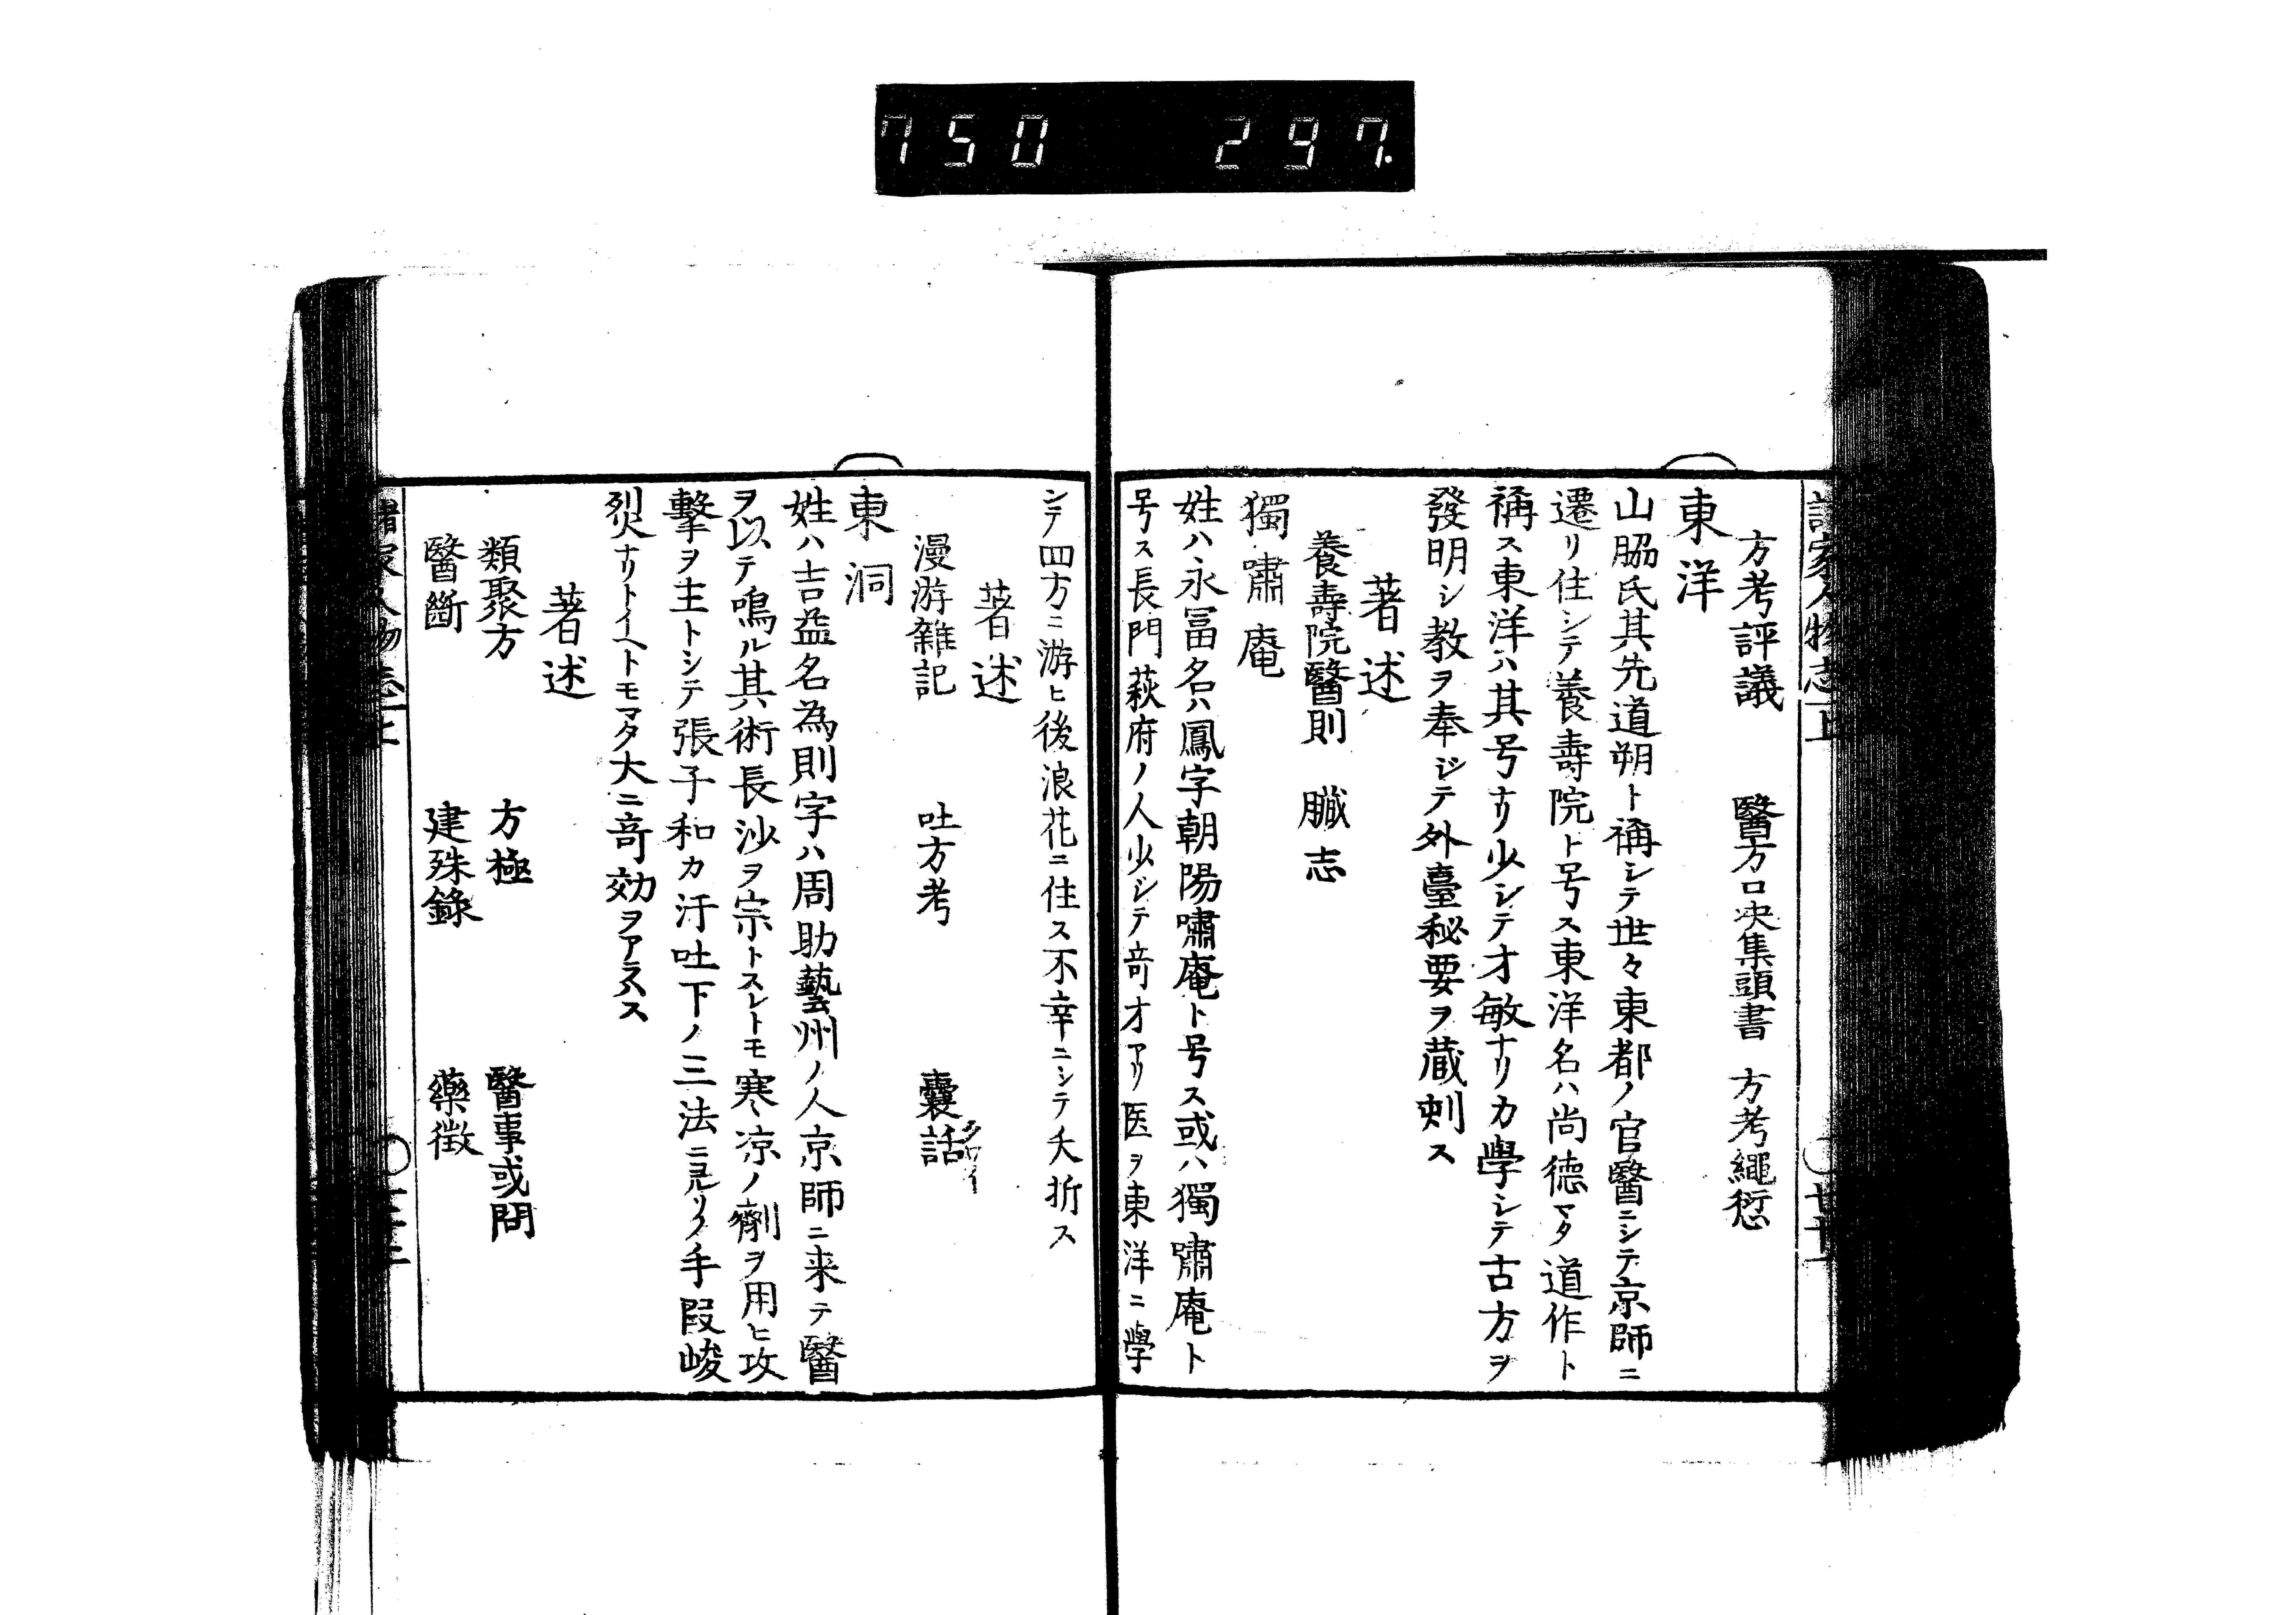 750 297.
方考評議 醫方口決集頭書 方考繩愆
東洋
山脇氏其先道朔ト稱シテ世々東都ノ官醫ニシテ京師ニ
遷リ住シテ養壽院ト号ス東洋名ハ尚德マタ道作ト
稱ス東洋ハ其号ナリ少シテ才敏ナリカ學シテ古方ヲ
發明シ教ヲ奉ジテ外臺秘要ヲ蔵刺ス
著述
養壽院醫則 臓志
獨嘯庵
姓ハ永冨名ハ鳳字朝陽嘯庵ト号ス或ハ獨嘯庵ト
号ス長門萩府ノ人少シテ竒才アリ医ヲ東洋ニ學
シテ四方ニ游ヒ後浪花ニ住ス不幸ニシテ夭折ス
著述
漫游雜記 吐方考 囊話
東洞
姓ハ吉益名為則字ハ周助藝州ノ人京師ニ来テ醫
ヲ以テ鳴ル其術長沙ヲ宗トスレトモ寒凉ノ劑ヲ用ヒ攻
擊ヲ主トシテ張子和カ汗吐下ノ三法ニ見リノ手段峻
烈ナリトイヘトモマタ大ニ竒効ヲアラハス
著述
類聚方 方極 醫事或問
醫斷 建殊錄 藥徴